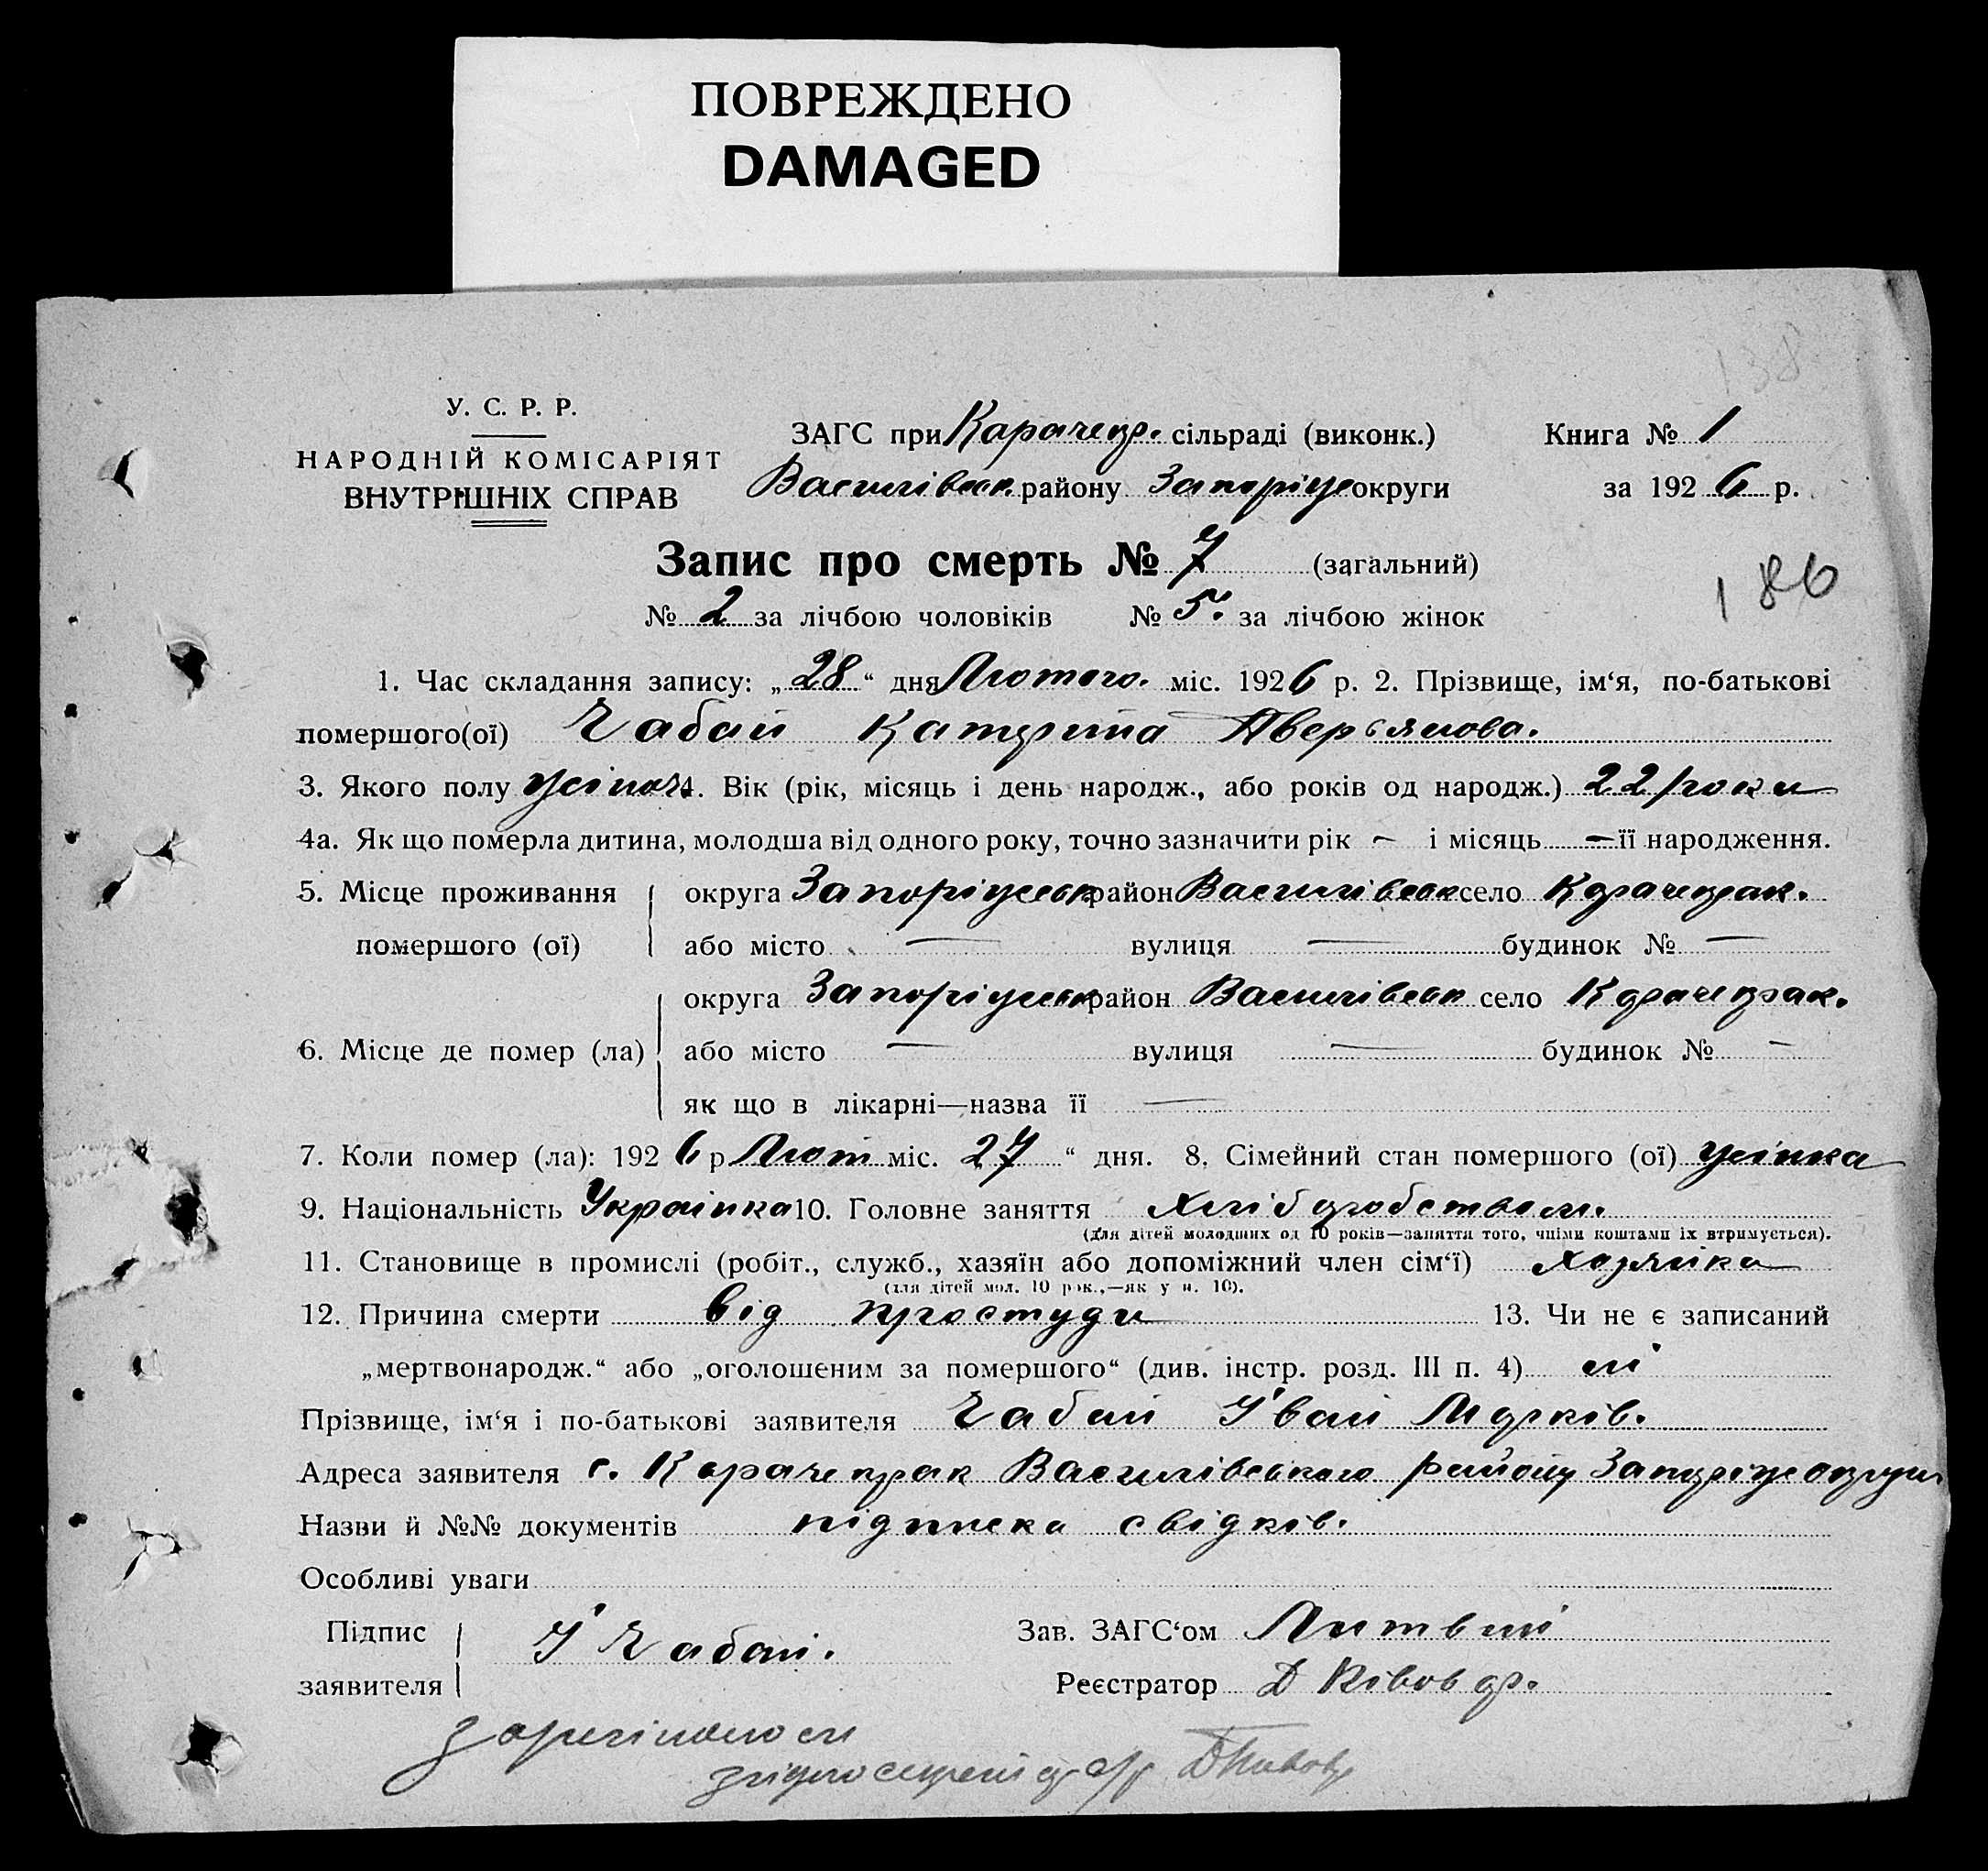 ПОВРЕЖДЕНО
DAMAGED
138
У. С. Р. Р.
НАРОДНІЙ КОМІСАРІЯТ
ВНУТРІШНІХ СПРАВ
ЗАГС при Карачекр. сільраді (виконк.)
Василівськ району Запоріж округи
Книга № 1
за 1926 р.
Запис про смерть № 7 (загальний)
№ 2 за лічбою чоловіків № 5. за лічбою жінок
186
1. Час складання запису: „28“ дня Лютого. міс. 1926 р. 2. Прізвище, ім‘я, по-батькові
помершого(ої) Чабан Катерина Аверьянова.
3. Якого полу жіноч. 4. Вік (рік, місяць і день народж., або років од народж.) 22 роки
4а. Як що померла дитина, молодша від одного року, точно зазначити рік — і місяць — її народження.
5. Місце проживання округа Запоріжськ район Василівськ село Карачекрак.
помершого (ої) або місто — вулиця — будинок № —
округа Запоріжськ район Василівськ село Карачекрак.
6. Місце де помер (ла) або місто — вулиця — будинок № —
як що в лікарні—назва її —
7. Коли помер (ла): 1926 р Лют міс. 27“ дня. 8. Сімейний стан помершого (ої) жінка
9. Національність Українка 10. Головне заняття хліборобством.
(для дітей молодших од 10 років—заняття того, чиїми коштами їх втримується).
11. Становище в промислі (робіт., служб., хазяїн або допоміжний член сім‘ї) хозяйка
(для дітей мол. 10 рок.,—як у п. 10).
12. Причина смерти від простуди 13. Чи не є записаний
„мертвонародж.“ або „оголошеним за помершого“ (див. інстр. розд. III п. 4) ні
Прізвище, ім‘я і по-батькові заявителя Чабан Іван Марків.
Адреса заявителя с. Карачекрак Василівського району Запоріж округи
Назви й №№ документів підписка свідків.
Особливі уваги
Підпис
заявителя І Чабан.
Зав. ЗАГС‘ом Литвин
Реєстратор Д Півовар.
з оригіналом
згідно секретар с/р